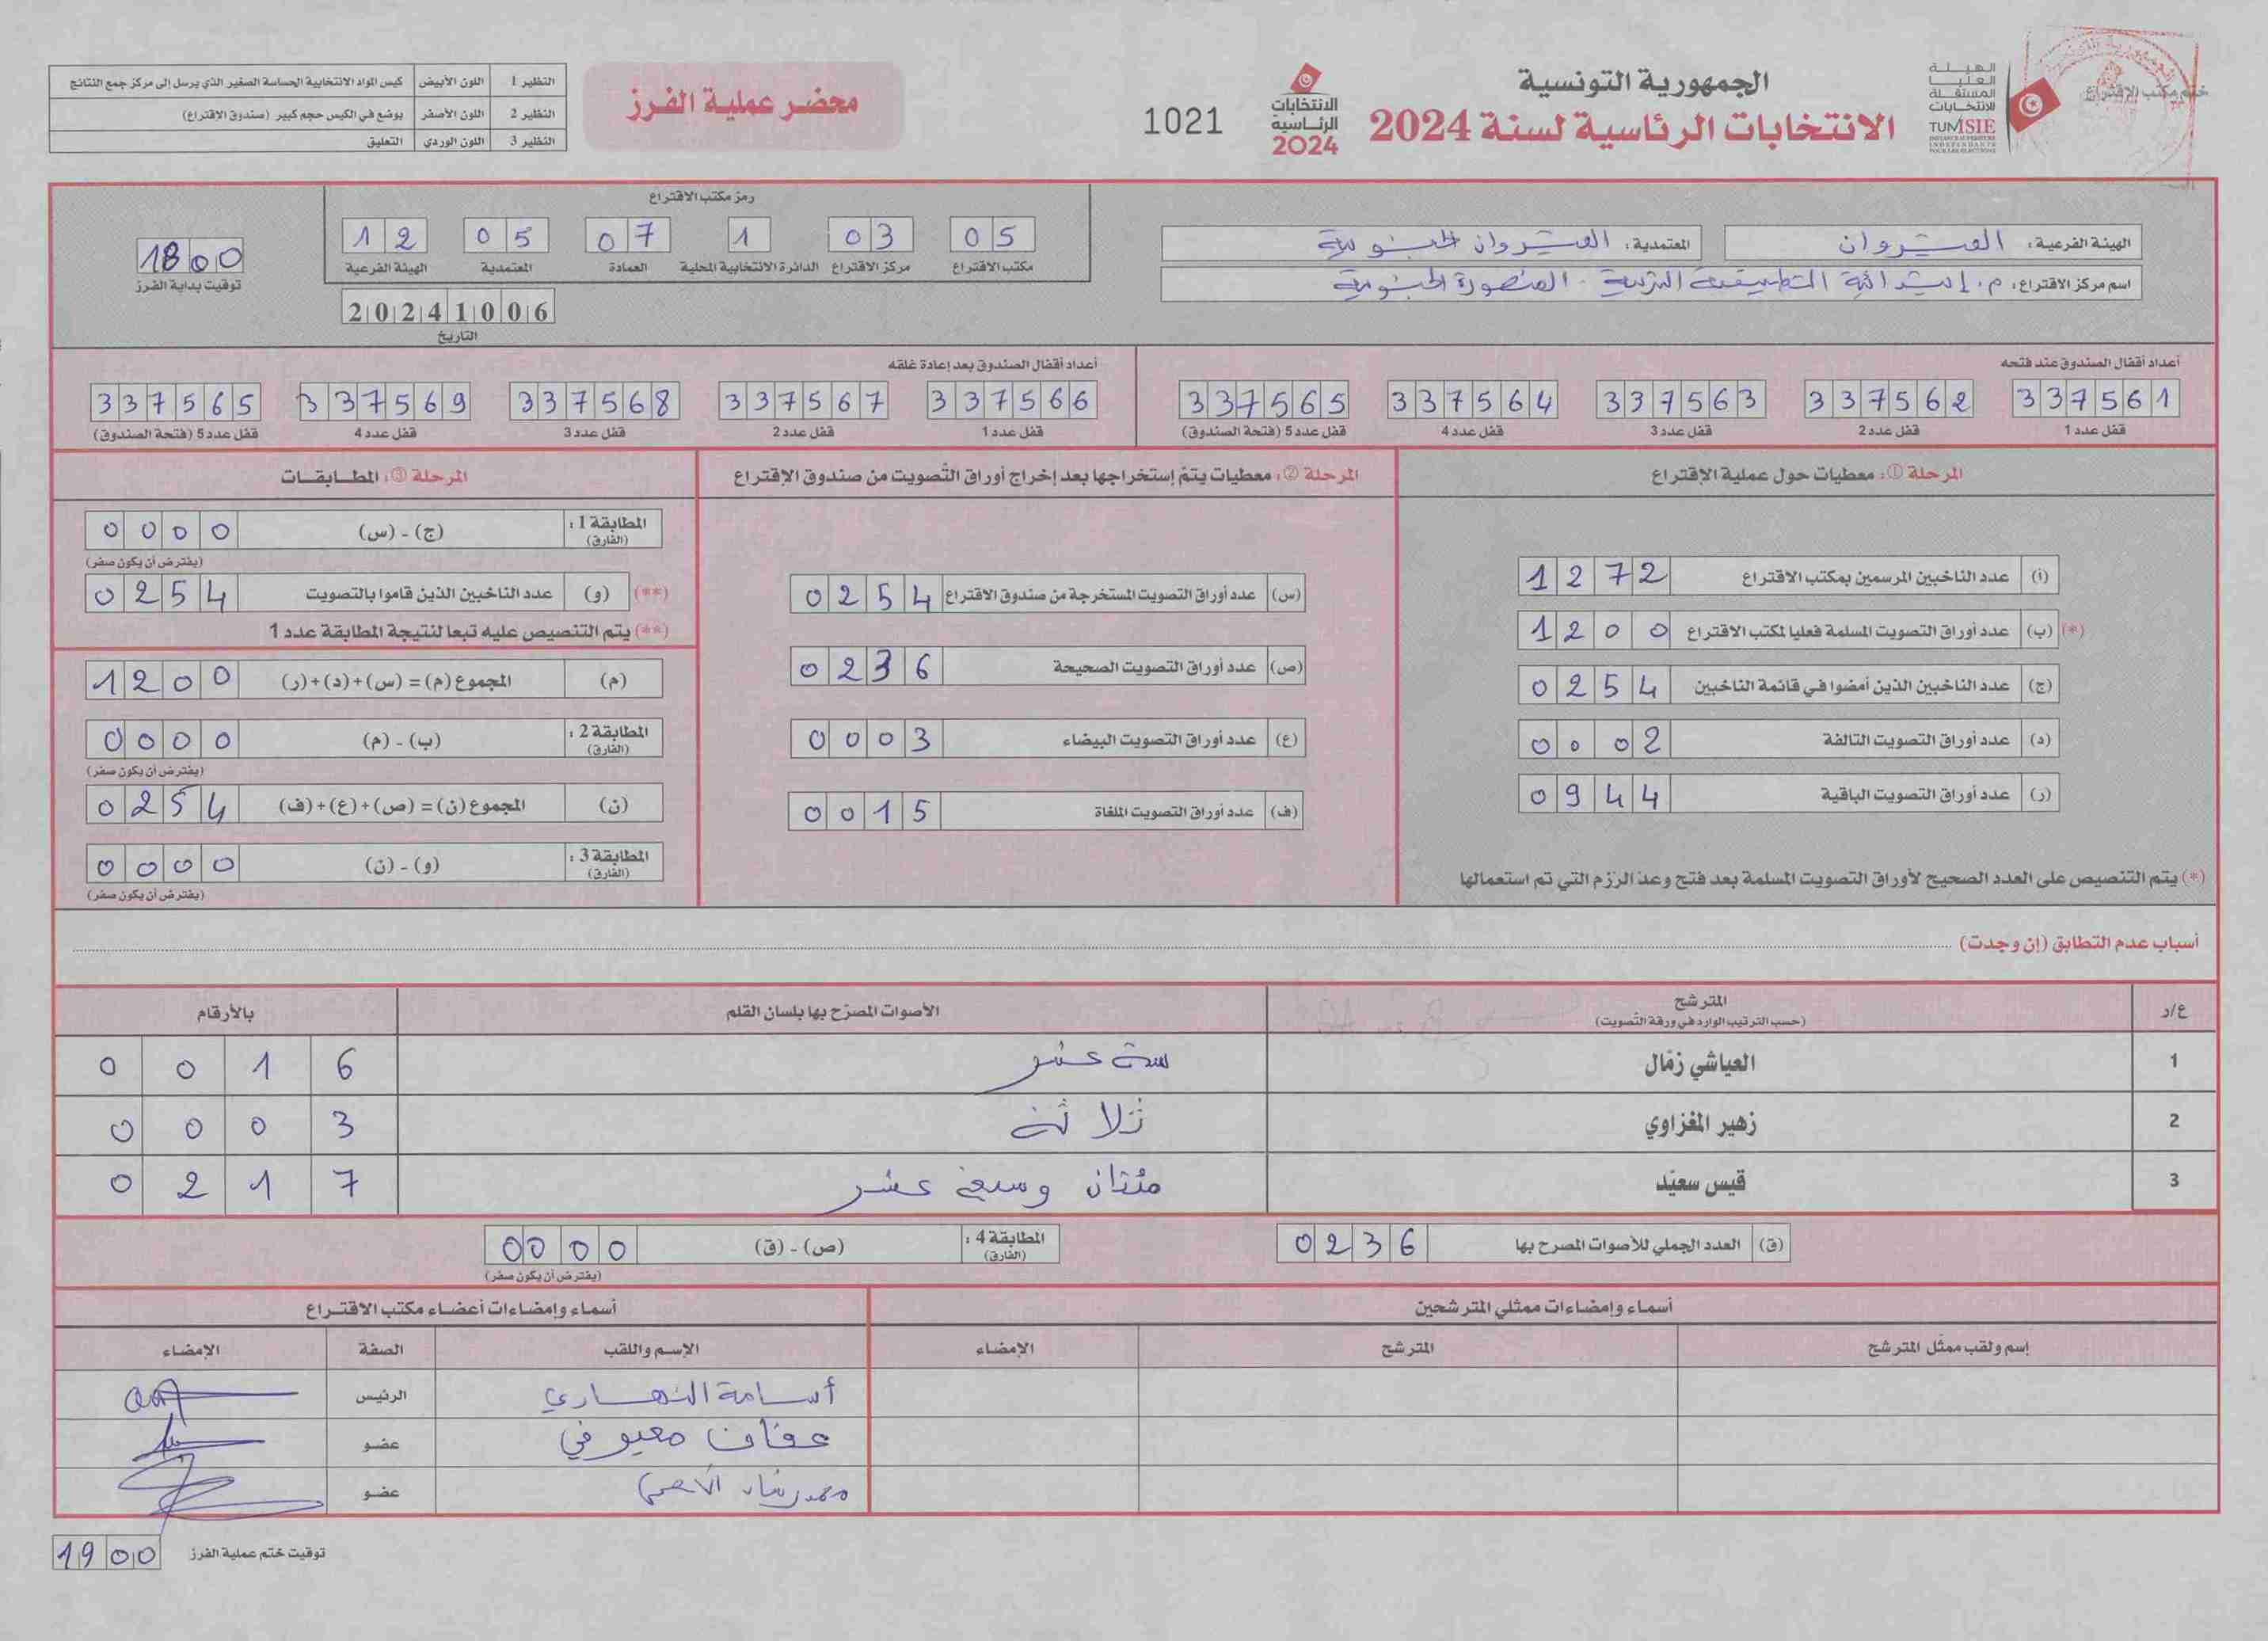 الجمهورية التونسية
الانتخابات الرئاسية لسنة 2024
الهيئة العليا المستقلة للانتخابات
TUNISIE
ختم مكتب الاقتراع
الانتخابات الرئاسية 2024
1021
محضر عملية الفرز
النظير 1 اللون الأبيض كيس المواد الانتخابية الحساسة الصغير الذي يرسل إلى مركز جمع النتائج
النظير 2 اللون الأصفر يوضع في الكيس حجم كبير (صندوق الاقتراع)
النظير 3 اللون الوردي التعليق
الهيئة الفرعية: القيروان
المعتمدية: القيروان الجنوبية
اسم مركز الاقتراع: م. إبتدائية التطبيقية الترقية - المنصورة الجنوبية
رمز مكتب الاقتراع
05 مكتب الاقتراع
03 مركز الاقتراع
1 الدائرة الانتخابية المحلية
07 العمادة
05 المعتمدية
12 الهيئة الفرعية
20241006
التاريخ
1800
توقيت بداية الفرز
أعداد أقفال الصندوق عند فتحه
337561 قفل عدد 1
337562 قفل عدد 2
337563 قفل عدد 3
337564 قفل عدد 4
337565 قفل عدد 5 (فتحة الصندوق)
أعداد أقفال الصندوق بعد إعادة غلقه
337566 قفل عدد 1
337567 قفل عدد 2
337568 قفل عدد 3
337569 قفل عدد 4
337565 قفل عدد 5 (فتحة الصندوق)
المرحلة ①: معطيات حول عملية الإقتراع
(أ) عدد الناخبين المرسمين بمكتب الاقتراع 1272
(*) (ب) عدد أوراق التصويت المسلمة فعليا لمكتب الاقتراع 1200
(ج) عدد الناخبين الذين أمضوا في قائمة الناخبين 0254
(د) عدد أوراق التصويت التالفة 0002
(ر) عدد أوراق التصويت الباقية 0944
(*) يتم التنصيص على العدد الصحيح لأوراق التصويت المسلمة بعد فتح وعد الرزم التي تم استعمالها
المرحلة ②: معطيات يتم إستخراجها بعد إخراج أوراق التصويت من صندوق الإقتراع
(س) عدد أوراق التصويت المستخرجة من صندوق الاقتراع 0254
(ص) عدد أوراق التصويت الصحيحة 0236
(ع) عدد أوراق التصويت البيضاء 0003
(ف) عدد أوراق التصويت الملغاة 0015
المرحلة ③: المطابقات
المطابقة 1: (الفارق) (ج) - (س) 0000
(يفترض أن يكون صفر)
(**) (و) عدد الناخبين الذين قاموا بالتصويت 0254
(**) يتم التنصيص عليه تبعا لنتيجة المطابقة عدد 1
(م) المجموع (م) = (س)+(د)+(ر) 1200
المطابقة 2: (الفارق) (ب) - (م) 0000
(يفترض أن يكون صفر)
(ن) المجموع (ن) = (ص)+(ع)+(ف) 0254
المطابقة 3: (الفارق) (و) - (ن) 0000
(يفترض أن يكون صفر)
أسباب عدم التطابق (إن وجدت)
ع/ر المترشح الأصوات المصرّح بها بلسان القلم بالأرقام
(حسب الترتيب الوارد في ورقة التصويت)
1 العياشي زمّال ستة عشر 0016
2 زهير المغزاوي ثلاثة 0003
3 قيس سعيّد مئتان وسبعة عشر 0217
(ق) العدد الجملي للأصوات المصرح بها 0236
المطابقة 4: (الفارق) (ص) - (ق) 0000
(يفترض أن يكون صفر)
أسماء وإمضاءات ممثلي المترشحين
إسم ولقب ممثّل المترشح المترشح الإمضاء
أسماء وإمضاءات أعضاء مكتب الاقتراع
الإسم واللقب الصفة الإمضاء
أسامة النهاري الرئيس
عفاف معيوفي عضو
عضو
توقيت ختم عملية الفرز 1900